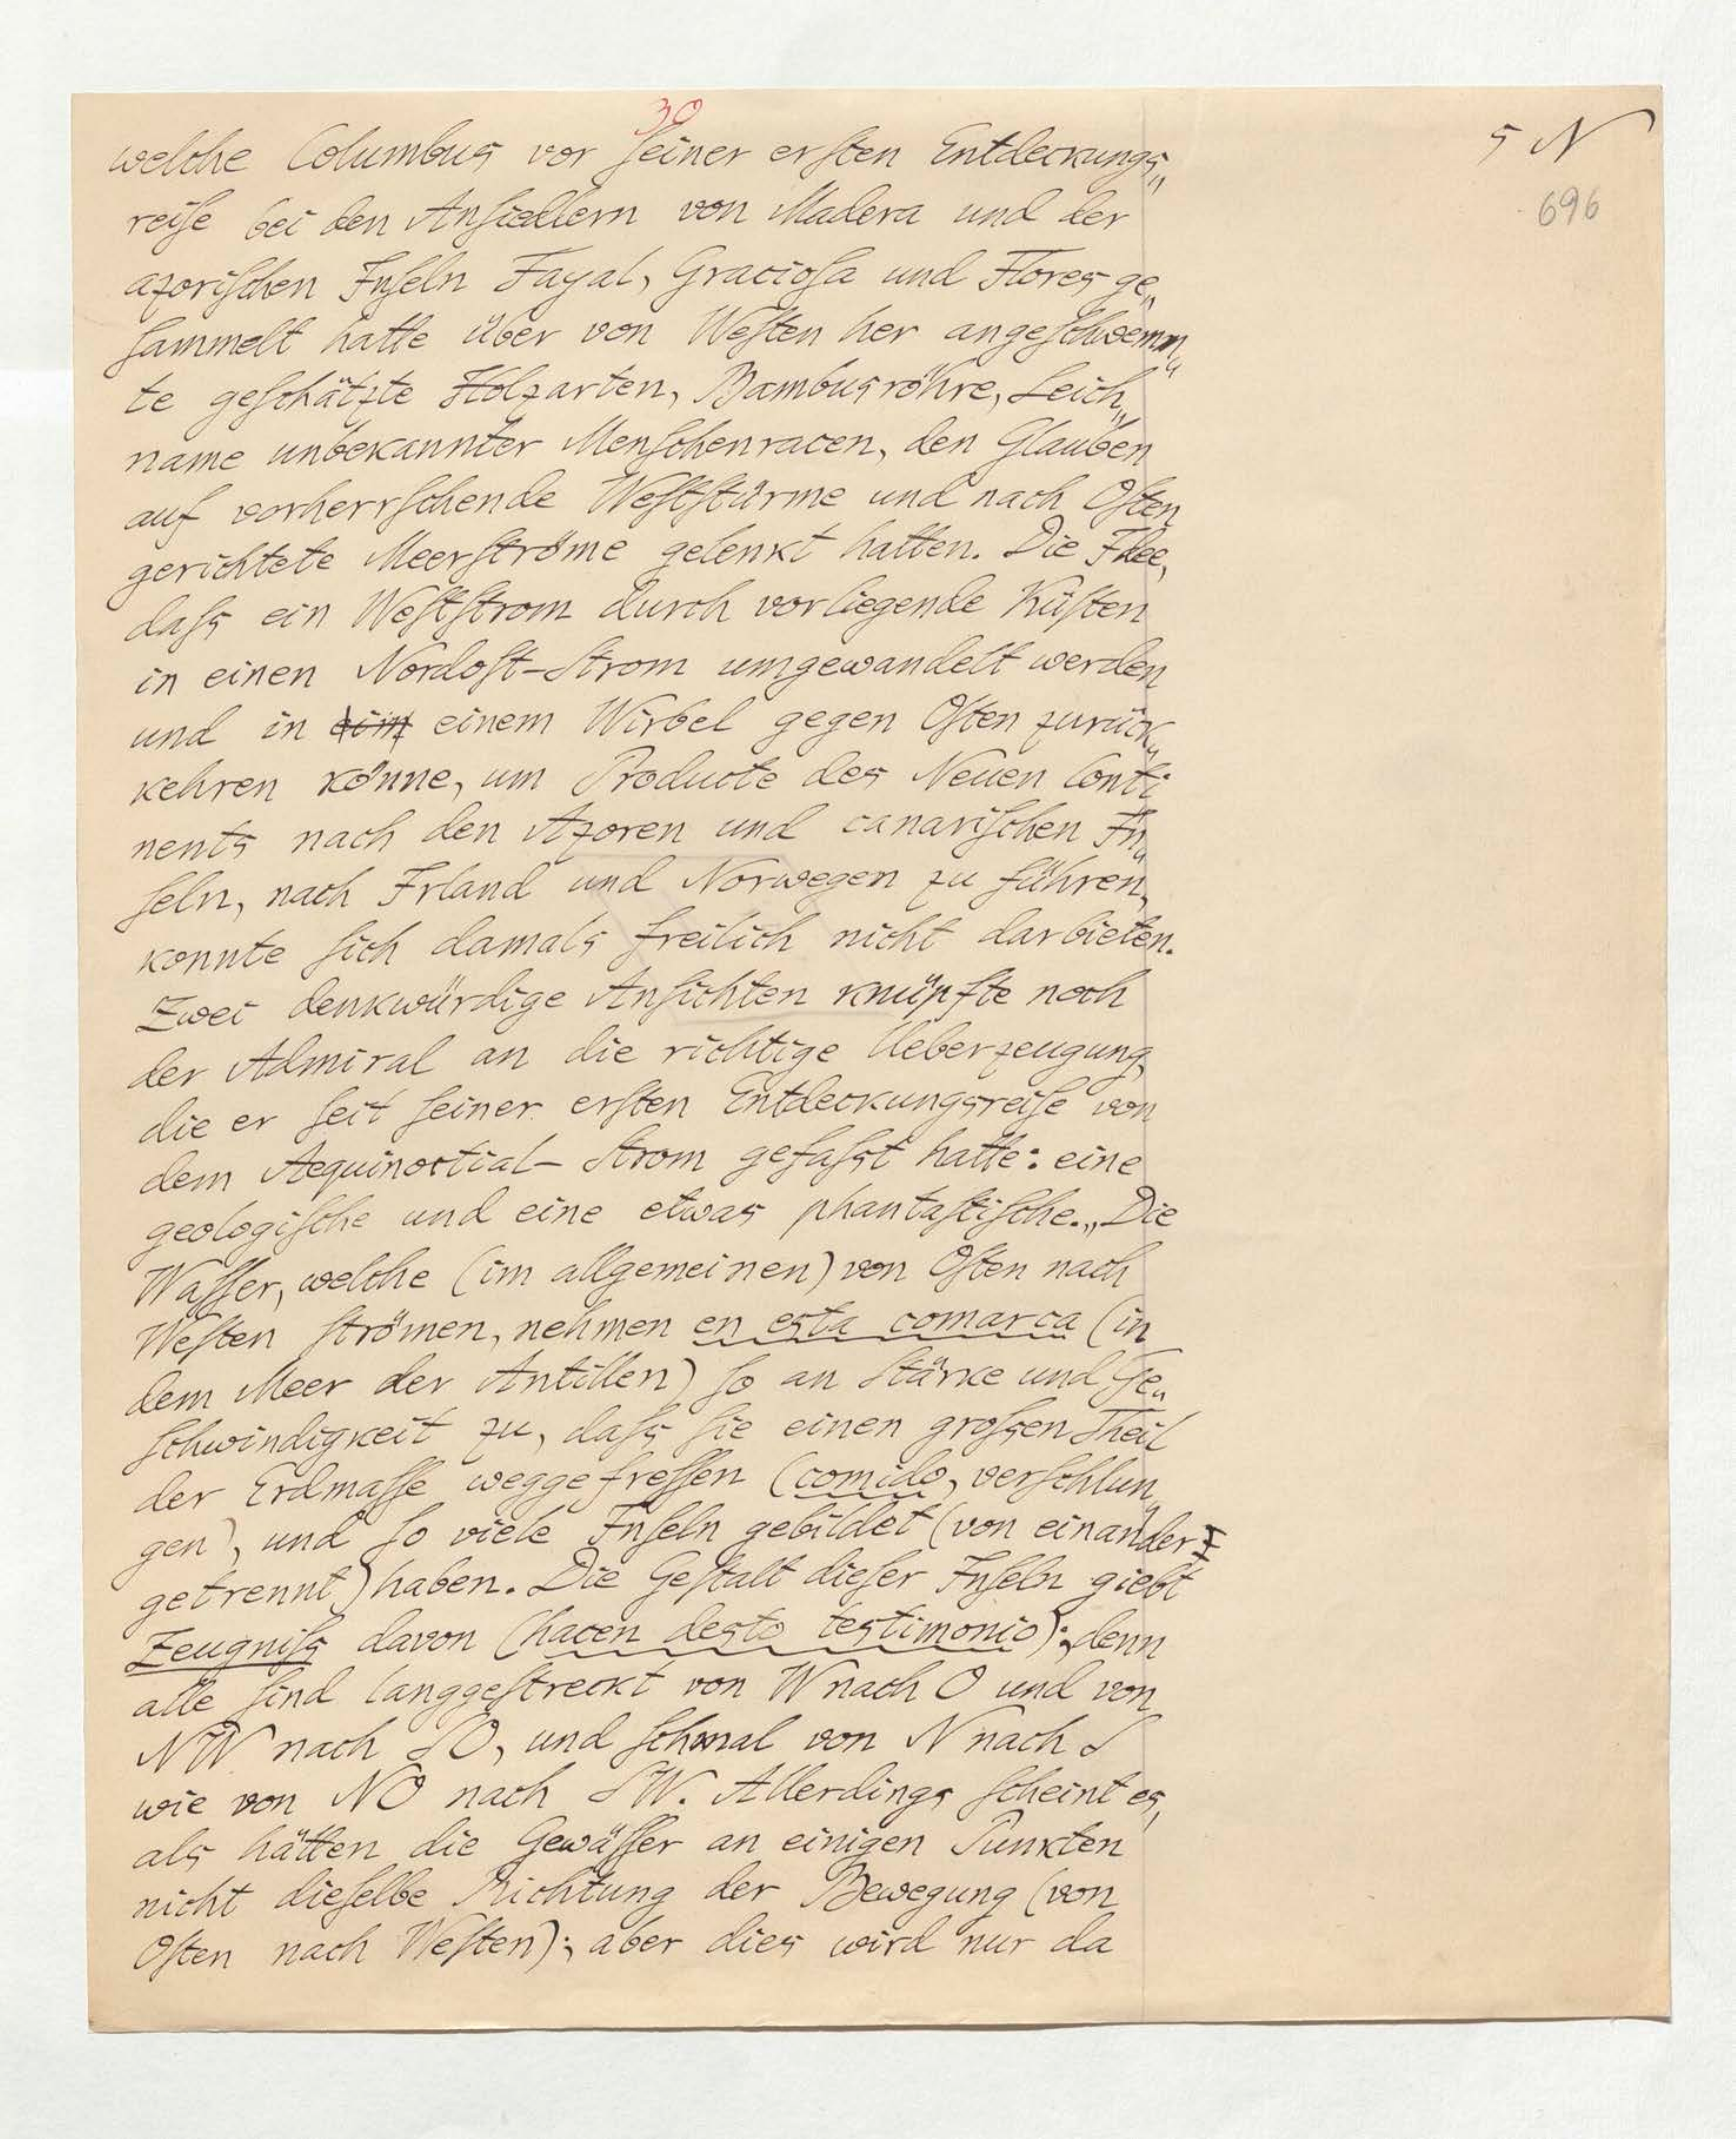 30
5 N
696
welche Columbus vor ſeiner erſten Entdeckungs„
reiſe bei den Anſiedlern von Madera und der
azoriſchen Inſeln Fayal, Gracioſa und Flores ge„
ſammelt hatte über von Weſten her angeſchwemm„
te geſchätzte Holzarten, Bambusröhre, Leich„
name unbekannter Menſchenracen, den Glauben
auf vorherrſchende Weſtſtürme und nach Oſten
gerichtete Meerſtröme gelenkt hatten. Die Idee,
daſs ein Weſtſtrom durch vorliegende Küſten
in einen Nordoſt-Strom umgewandelt werden
und in einem Wirbel gegen Oſten zurück„
kehren könne, um Producte des Neuen Conti„
nents nach den Azoren und canariſchen In„
ſeln, nach Irland und Norwegen zu führen,
konnte ſich damals freilich nicht darbieten.
Zwei denkwürdige Anſichten knüpfte noch
der Admiral an die richtige Ueberzeugung,
die er ſeit ſeiner erſten Entdeckungsreiſe von
dem Aequinoctial-Strom gefaſst hatte: eine
geologiſche und eine etwas phantaſtiſche. „Die
Waſſer, welche (im allgemeinen) von Oſten nach
Weſten ſtrömen, nehmen en esta comarca (in
dem Meer der Antillen) ſo an Stärke und Ge„
ſchwindigkeit zu, daſs ſie einen groſsen Theil
der Erdmaſſe weggefreſſen (comido, verſchlun„
gen), und ſo viele Inſeln gebildet (von einander
getrennt) haben. Die Geſtalt dieſer Inſeln giebt
Zeugniſs davon (hacen desto testimonio); denn
alle ſind langgeſtreckt von W nach O und von
NW nach SO, und ſchmal von N nach S
wie von NO nach SW. Allerdings ſcheint es,
als hätten die Gewäſſer an einigen Punkten
nicht dieſelbe Richtung der Bewegung (von
Oſten nach Weſten); aber dies wird nur da